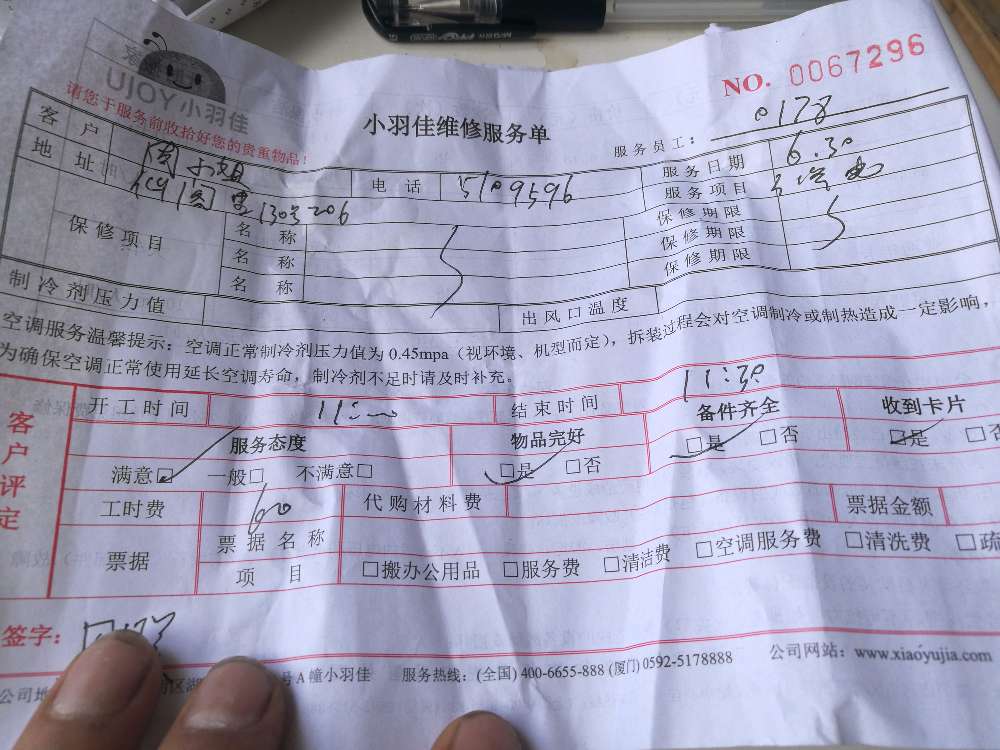 UJOY小羽佳
NO. 0067296
请您于服务前收拾好您的贵重物品！
小羽佳维修服务单
服务员工： 0178
客户 电话 5109596 服务日期 6.30
地址 130号206 服务项目
保修项目 名称 保修期限
名称 保修期限
名称 保修期限
制冷剂压力值 出风口温度
空调服务温馨提示：空调正常制冷剂压力值为0.45mpa（视环境、机型而定），拆装过程会对空调制冷或制热造成一定影响，
为确保空调正常使用延长空调寿命，制冷剂不足时请及时补充。
客户评定
开工时间 11: 结束时间 11:30
服务态度 物品完好 备件齐全 收到卡片
满意□ 一般□ 不满意□ □是 □否 □是 □否 □是 □否
工时费 60 代购材料费 票据金额
票据 票据名称
项目 □搬办公用品 □服务费 □清洁费 □空调服务费 □清洗费 □疏
签字：
公司地 号A幢小羽佳 服务热线：(全国) 400-6655-888 (厦门) 0592-5178888 公司网站：www.xiaoyujia.com